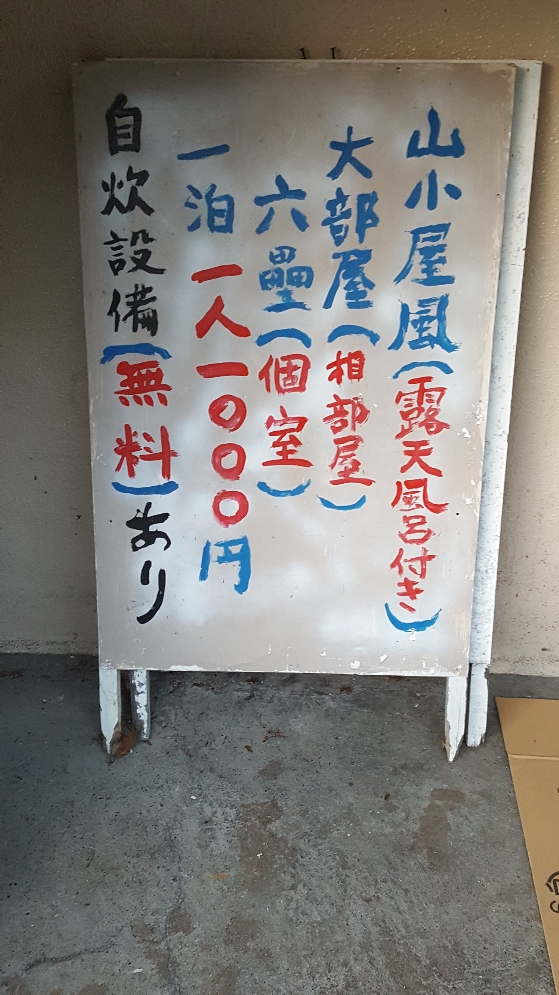 山小屋風(露天風呂付き)
大部屋(相部屋)
六壘(個室)
一泊一人一〇〇〇円
自炊設備(無料)あり